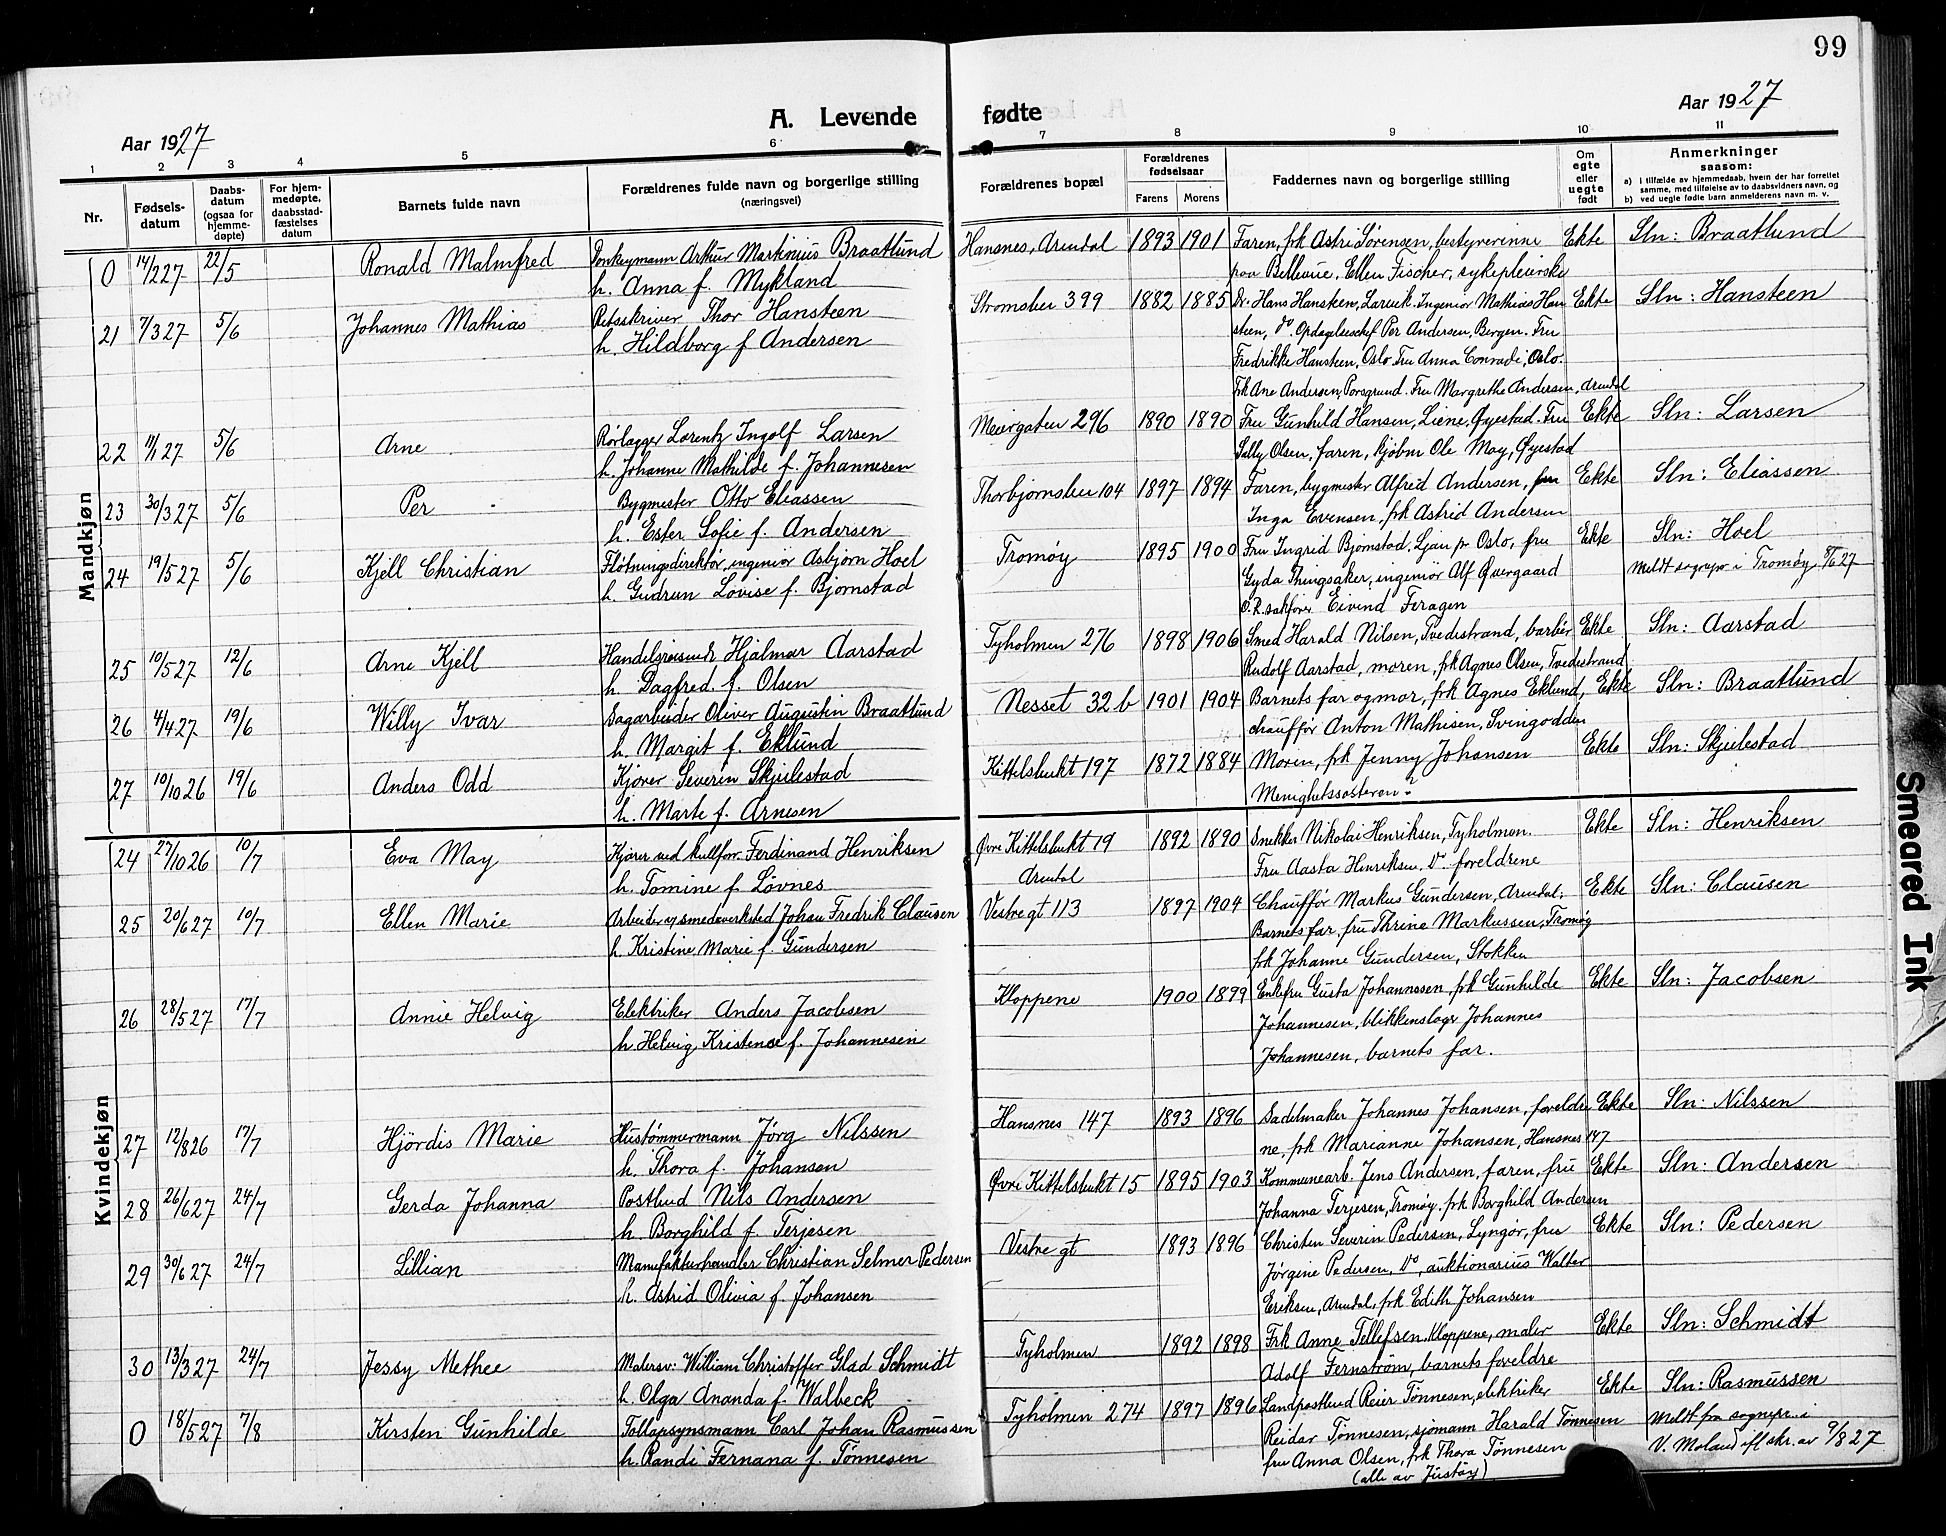 99
Aar 1927
A. Levende fødte
Aar 1927
1 2 3 4 5 6 7 8 9 10 11
Nr.
Fødsels-
datum
Daabs-
datum
(ogsaa for
hjemme-
døpte)
For hjem-
medøpte,
daabsstad-
fæstelses
datum
Barnets fulde navn
Forældrenes fulde navn og borgerlige stilling
(næringsvei)
Forældrenes bopæl
Forældrenes
fødselsaar
Farens Morens
Faddernes navn og borgerlige stilling
Om
egte
eller
uegte
født
Anmerkninger
saasom:
a) i tilfælde av hjemmedaab, hvem der har forrettet
samme, med tilføielse av to daabsvidners navn, og
b) ved uegte fødte barn anmelderens navn m. v.
Mandkjøn
0 14/2 27 22/5 Ronald Malmfred Donkeymann Arthur Markinius Braatlund Hansnes, Arendal 1893 1901 Faren, frk Astri Sørensen, bestyrerinne Ekte Sln: Braatlund
h. Anna f. Mykland paa Bellevue, Ellen Fischer, sykepleierske
21 7/3 27 5/6 Johannes Mathias Retsskriver Thor Hansteen Strømsbu 399 1882 1885 Dr. Hans Hansteen, Larvik. Ingeniør Mathias Han Ekte Sln: Hansteen
h. Hildborg f Andersen steen, do. Per Andersen, Bergen. Fru
Fredrikke Hansteen, Oslo Fru Anna Conradi, Oslo.
Frk Ane Andersen, Porsgrund. Fru Margrethe Andersen, Arendal
22 11/1 27 5/6 Arne Rørlægger Lorentz Ingolf Larsen Meiergaten 296 1890 1890 Fru Gunhild Hansen, Liene, Øyestad. Fru Ekte Sln: Larsen
h. Johanne Mathilde f. Johannesen Selly Olsen, faren, kjøbm Ole May, Øyestad
23 30/3 27 5/6 Per Bygmester Otto Eliassen Thorbjørnsbu 104 1897 1894 Faren, bygmester Alfred Andersen, fru Ekte Sln: Eliassen
h. Ester Sofie f. Andersen Inga Evensen, frk Astrid Andersen
24 19/5 27 5/6 Kjell Christian Fløtningsdirektør, ingeniør Asbjørn Hoel Tromøy 1895 1900 Fru Ingrid Bjørnstad, Ljan pr Oslo, fru Ekte Sln: Hoel
h. Gudrun Lovise f. Bjørnstad Gyda Thingsaker, ingeniør Alf Øvergaard Meldt sognepr i Tromøy 8/6 27
O.R. sakfører Eivind Feragen
25 10/5 27 12/6 Arne Kjell Handelsreisende Hjalmar Aarstad Tyholmen 276 1898 1906 Smed Harald Nilsen, Tvedestrand, barbér Ekte Sln: Aarstad
h. Dagfred f. Olsen Rudolf Aarstad, moren, frk Agnes Olsen, Tvedestrand
26 4/4 27 19/6 Willy Ivar Sagarbeider Oliver Augustin Braatlund Nesset 32 b 1901 1904 Barnets far og mor, frk Agnes Eklund, Ekte Sln: Braatlund
h. Margit f. Eklund chauffør Anton Mathisen, Svingodden
27 10/10 26 19/6 Anders Odd Kjører Severin Skjulestad Kittelsbukt 197 1872 1884 Moren, frk Jenny Johansen Ekte Sln: Skjulestad
h. Marte f. Arnesen Menighetssøsteren
Kvindekjøn
24 27/10 26 10/7 Eva May Kjører ved kullforr. Ferdinand Henriksen Øvre Kittelsbukt 19 1892 1890 Snekker Nikolai Henriksen, Tyholmen. Ekte Sln: Henriksen
h. Tomine f. Løvnes Arendal Fru Aasta Henriksen. Do foreldrene
25 20/6 27 10/7 Ellen Marie Arbeider v/ smedeverksted Johan Fredrik Clausen Vestre gt 113 1897 1904 Chauffør Markus Gundersen, Arendal. Ekte Sln: Clausen
h. Kristine Marie f. Gundersen Barnets far, fru Thrine Markussen, Tromøy
frk Johanne Gundersen, Stokken
26 28/5 27 17/7 Annie Helvig Elektriker Anders Jacobsen Kloppene 1900 1899 Enkefru Gusta Johannssen, frk Gunhilde Ekte Sln: Jacobsen
h. Helvig Kristense f. Johannesen Johannesen, blikkenslager Johannes
Johannesen, barnets far.
27 12/8 26 17/7 Hjördis Marie Hustømmermann Jörg Nilssen Hansnes 147 1893 1896 Sadelmaker Johannes Johansen, foreldre Ekte Sln: Nilssen
h. Thora f. Johansen ne, frk Marianne Johansen, Hansnes 147
28 26/6 27 24/7 Gerda Johanna Postbud Nils Andersen Øvre Kittelsbukt 15 1895 1903 Kommunearb. Jens Andersen, faren, fru Ekte Sln: Andersen
h. Borghild f. Terjesen Johanna Terjesen, Tromøy, frk Borghild Andersen
29 30/6 27 24/7 Lillian Manufakturhandler Christian Selmer Pedersen Vestre gt 1893 1896 Christen Severin Pedersen, Lyngør, fru Ekte Sln: Pedersen
h. Astrid Olivia f. Johansen Jörgine Pedersen, Do, auktionarius Walter
Eriksen, Arendal, frk Edith Johansen
30 13/3 27 24/7 Jessy Methee Malersv: William Christoffer Glad Schmidt Tyholmen 1892 1898 Frk Anne Tellefsen, Kloppene, maler Ekte Sln: Schmidt
h. Olga Ananda f. Walbeck Adolf Fernstrøm, barnets foreldre
0 18/5 27 7/8 Kirsten Gunhilde Tollopsynsmann Carl Johan Rasmussen Tyholmen 274 1897 1896 Landpostbud Reier Tønnesen, elektriker Ekte Sln: Rasmussen
h. Randi Fernana f. Tönnesen Reidar Tønnesen, sjømann Harald Tønnesen Meldt fra sognepr. i
fru Anna Olsen, frk Thora Tönnesen V. Moland ifl skr. av 9/8 27
(alle av Justøy)
Smeared Ink